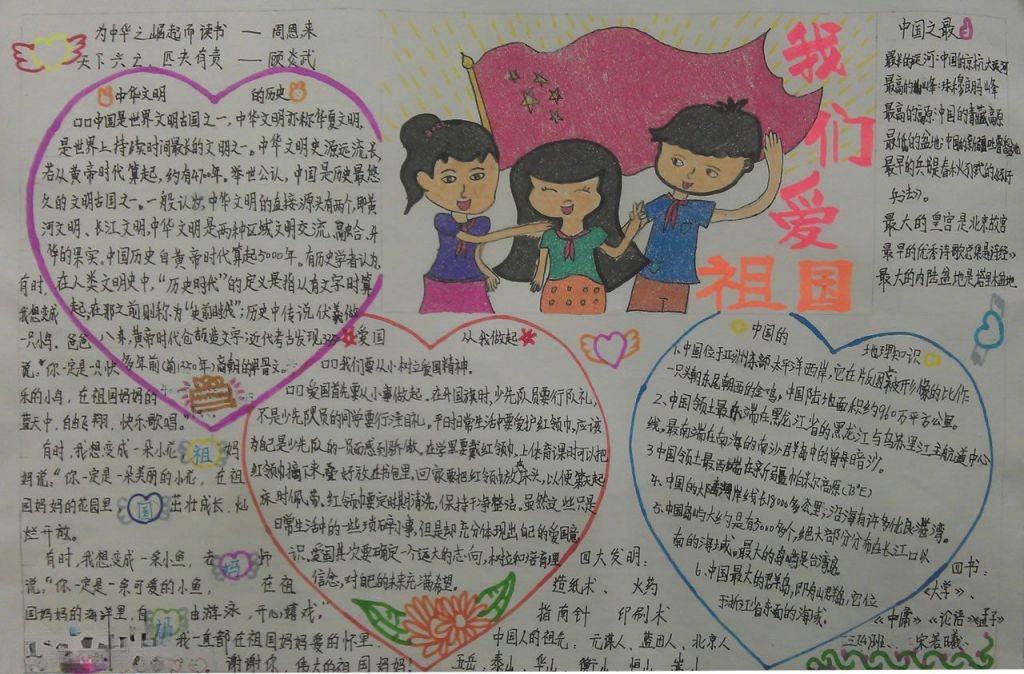 为中华之崛起而读书 — 周恩来
天下兴亡，匹夫有责 — 顾炎武
我们爱祖国
中国之最
最长的运河:中国的京杭大运河
最高的山峰:珠穆朗玛峰
最高的高原:中国的青藏高原
最低的盆地:中国的新疆吐鲁番盆地
兵法》。
最大的皇宫是北京故宫
最大的内陆盆地是塔里木盆地
中华文明 的历史
中国是世界文明古国之一,中华文明亦称华夏文明,
是世界上持续时间最长的文明之一。中华文明史源远流长,
若从黄帝时代算起,约有4700年。举世公认,中国是历史最悠
久的文明古国之一。一般认为,中华文明的直接源头有两个,即黄
河文明、长江文明,中华文明是两种区域文明交流、融合、升
华的果实。中国历史自黄帝时代算起5000年。有历史学者认为,
在人类文明史中,“历史时代”的定义是指从有文字时算
起,在那之前则称为“史前时代”;历史中传说伏羲做
八卦,黄帝时代仓颉造文字;近代考古发现
多年前(前1350年)商朝的甲骨文。
有时,
我想变成
一只小鸟,爸爸
说:“你一定是一只快
乐的小鸟,在祖国妈妈的
蓝天中,自由飞翔,快乐歌唱。”
有时,我想变成一朵小花 妈
妈说:“你一定是一朵美丽的小花,在祖
国妈妈的花园里 茁壮成长、灿
烂开放。
有时,我想变成一条小鱼, 老 师
说:“你一定是一条可爱的小鱼, 在祖
国妈妈的海洋里,自 由游泳,开心嬉戏。”
我一直都在祖国妈妈爱的怀里.
谢谢你,伟大的祖国妈妈!
祖
国
妈
妈
爱国 从我做起
我们要从小树立爱国精神。
爱国首先要从小事做起。在升国旗时,少先队员要行队礼,
不是少先队员的同学要行注目礼。平日日常生活中要爱护红领巾,应该
为自己是少先队的一员而感到骄傲。在学校里要戴红领巾,上体育课时可以把
红领巾摘下来,叠好放在书包里,回家要把红领巾放床头,以便第二天起
床时佩戴。红领巾要定时期清洗,保持干净整洁。虽然这些只是
日常生活中的一些琐碎小事,但是却充分体现出自己的爱国意
识。爱国其次要确定一个远大的志向,
信念,对自己的未来充满希望。
中国的 地理知识
1.中国位于亚洲东部太平洋西岸,
一只头朝东尾朝西的金鸡,中国陆地面积约960万平方公里。
2、中国领土最北端在黑龙江省的黑龙江与乌苏里江主航道中心
线,最南端在南海的南沙群岛中的曾母暗沙。
3中国领土最西端在新疆帕米尔高原
4、中国的大陆海岸线长18000多公里;沿海有许多优良港湾。
5、中国岛屿大约是有5000多个,绝大部分分布在长江口以
南的海域。最大的岛屿是台湾岛
6、中国最大的群岛,即舟山群岛,它位
于浙江省东面的海域。
四大发明:
造纸术、火药
指南针 印刷术
中国人的祖先: 元谋人、蓝田人、北京人
五岳:泰山、华山、衡山、恒山、嵩山
四书:
《大学》、
《中庸》《论语》《孟子》